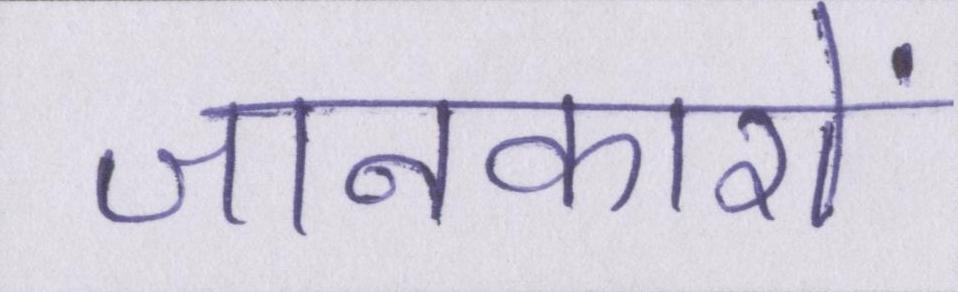 जानकारों